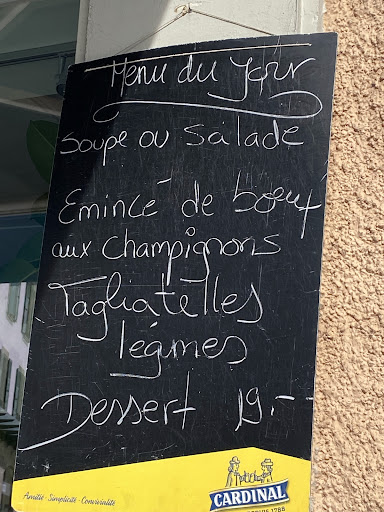 Menu du Jour
Soupe ou Salade
Emincé de boeuf
aux champignons
Tagliatelles
légmes
Dessert 19.-
Amitié - Simplicité - Convivialité
CARDINAL
DEPUIS 1788